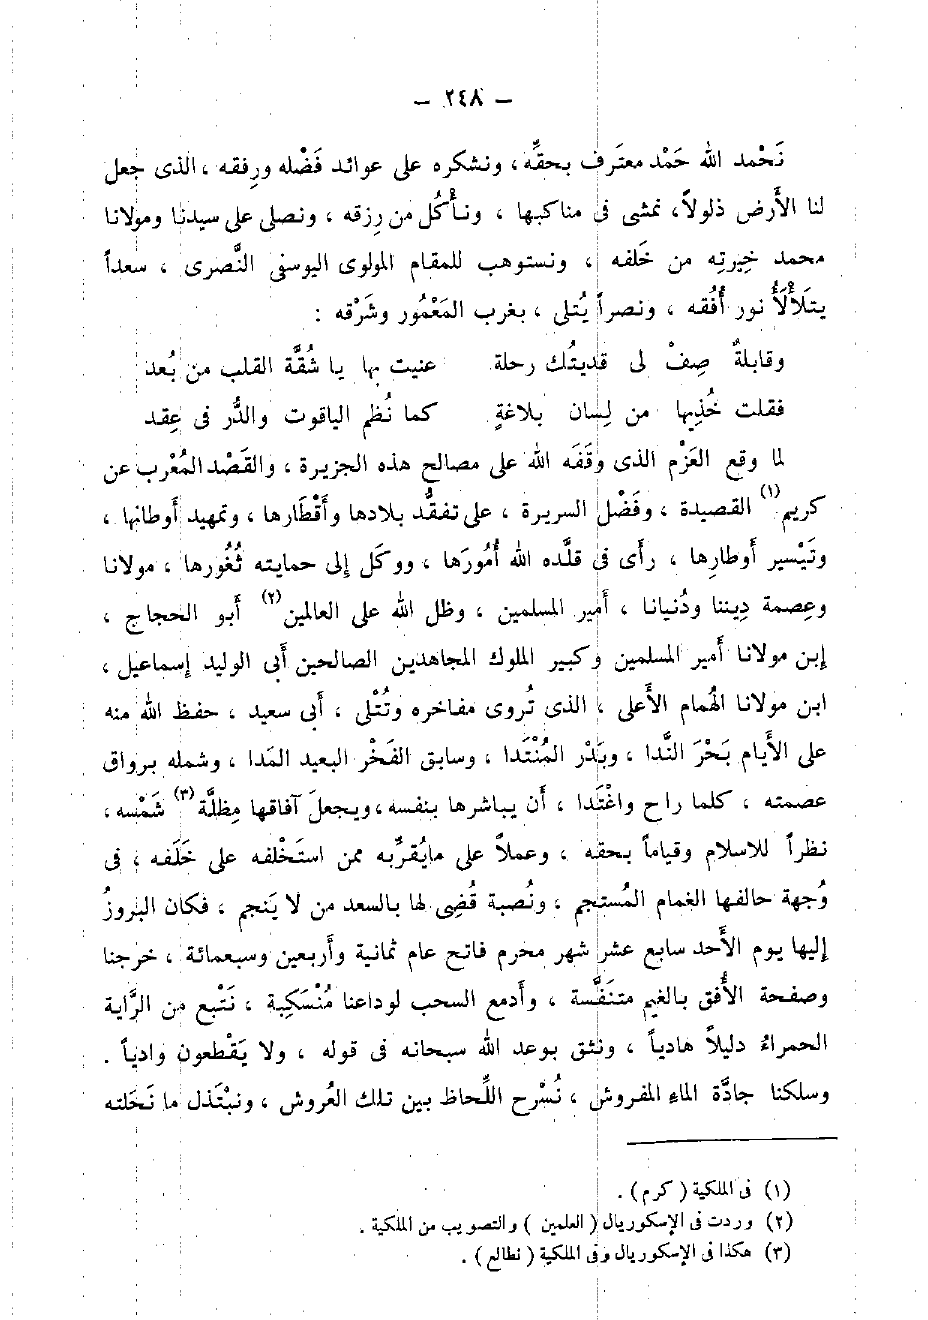 — ٢٤٨ —
نَحْمد الله حَمْد معترَف بحقِّه ، ونشكره على عوائد فَضْله ورِفقه ، الذى جعل
لنا الأَرض ذلولاً، نمشى فى مناكبها ، ونأْكُل من رِزقه ، ونصلى على سيدنا ومولانا
محمد خِيرتِه من خَلفه ، ونستوهب للمقام المولوى اليوسفى النَّصرى ، سعداً
يتلَأْلَأُ نور أُفُقه ، ونصراً يُتلى ، بغرب المَعْمُور وشَرْقه :
وقابلةٌ صِفْ لى قديتُك رحلة عنيت بها يا شُقَّة القلب من بُعد
فقلت خُذِيها من لِسان بلاغةٍ كما نُظم الياقوت والدُّر فى عِقد
لما وقع العَزْم الذى وقَفَه الله على مصالح هذه الجزيرة ، والقَصْد المُعْرب عن
كريم(١) القصيدة ، وفَضْل السريرة ، على تفقُّد بلادها وأَقْطارها ، وتمهيد أَوطانها ،
وتَيْسير أَوطارِها ، رأَى فى قلَّده الله أُمُورَها ، ووكَل إلى حمايته ثُغُورها ، مولانا
وعِصمة دِيننا ودُنيانا ، أَمير المسلمين ، وظل الله على العالمين(٢) أَبو الحجاج ،
إبن مولانا أَمير المسلمين وكبير الملوك المجاهدين الصالحين أَبى الوليد إسماعيل ،
ابن مولانا الهُمام الأَعلى ، الذى تُروى مفاخره وتُتْلى ، أَبى سعيد ، حفظ الله منه
على الأَيام بَحْرَ النَّدا ، وبَدْر المُنْتَدا ، وسابق الفَخْر البعيد المَدا ، وشمله برواق
عصمته ، كلما راح واغْتَدا ، أَن يباشرها بنفسه ، ويجعلَ آفاقها مِظلَّة(٣) شَمْسه ،
نظراً للاسلام وقياماً بحقه ، وعملاً على مايُقرِّبه ممن استَخْلفه على خَلَفه ، فى
وُجهة حالفها الغمام المُستجم ، ونُصبة قُضِى لها بالسعد من لا يَنجم ، فكان البروزُ
إليها يوم الأَحد سابع عشر شهر محرم فاتح عام ثمانية وأَربعين وسبعمائة ، خرجنا
وصفحة الأُفق بالغيم متنَفَّسة ، وأَدمع السحب لوداعنا مُنْسَكِبة ، نَتْبع من الرَّاية
الحمراءُ دليلاً هادياً ، ونثق بوعد الله سبحانه فى قوله ، ولا يَقْطعون وادياً .
وسلكنا جادَّة الماءِ المفروش ، نُسْرح اللِّحاظ بين تلك العُروش ، ونبْتَذل ما نَحَلته
(١) فى الملكية ( كرم ) .
(٢) وردت فى الإسكوريال ( العلمين ) والتصويب من الملكية .
(٣) هكذا فى الإسكوريال وفى الملكية ( نطالع ) .